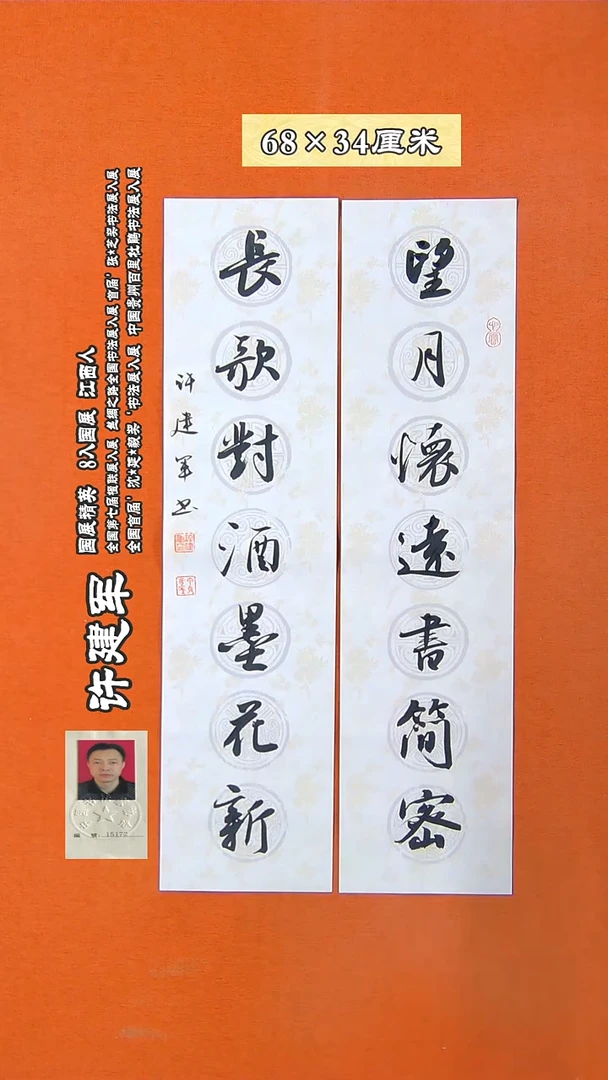 68×34厘米
望月懷遠書簡密
長歌對酒墨花新
许建军书
许建军
国展精英 8入国展 江西人
全国第七届楹联展入展 丝绸之路全国书法展入展 首届'张★芝奖书法展入展
全国首届'沈★延★毅奖'书法展入展 中国贵州百里杜鹃书法展入展
编 号：15172